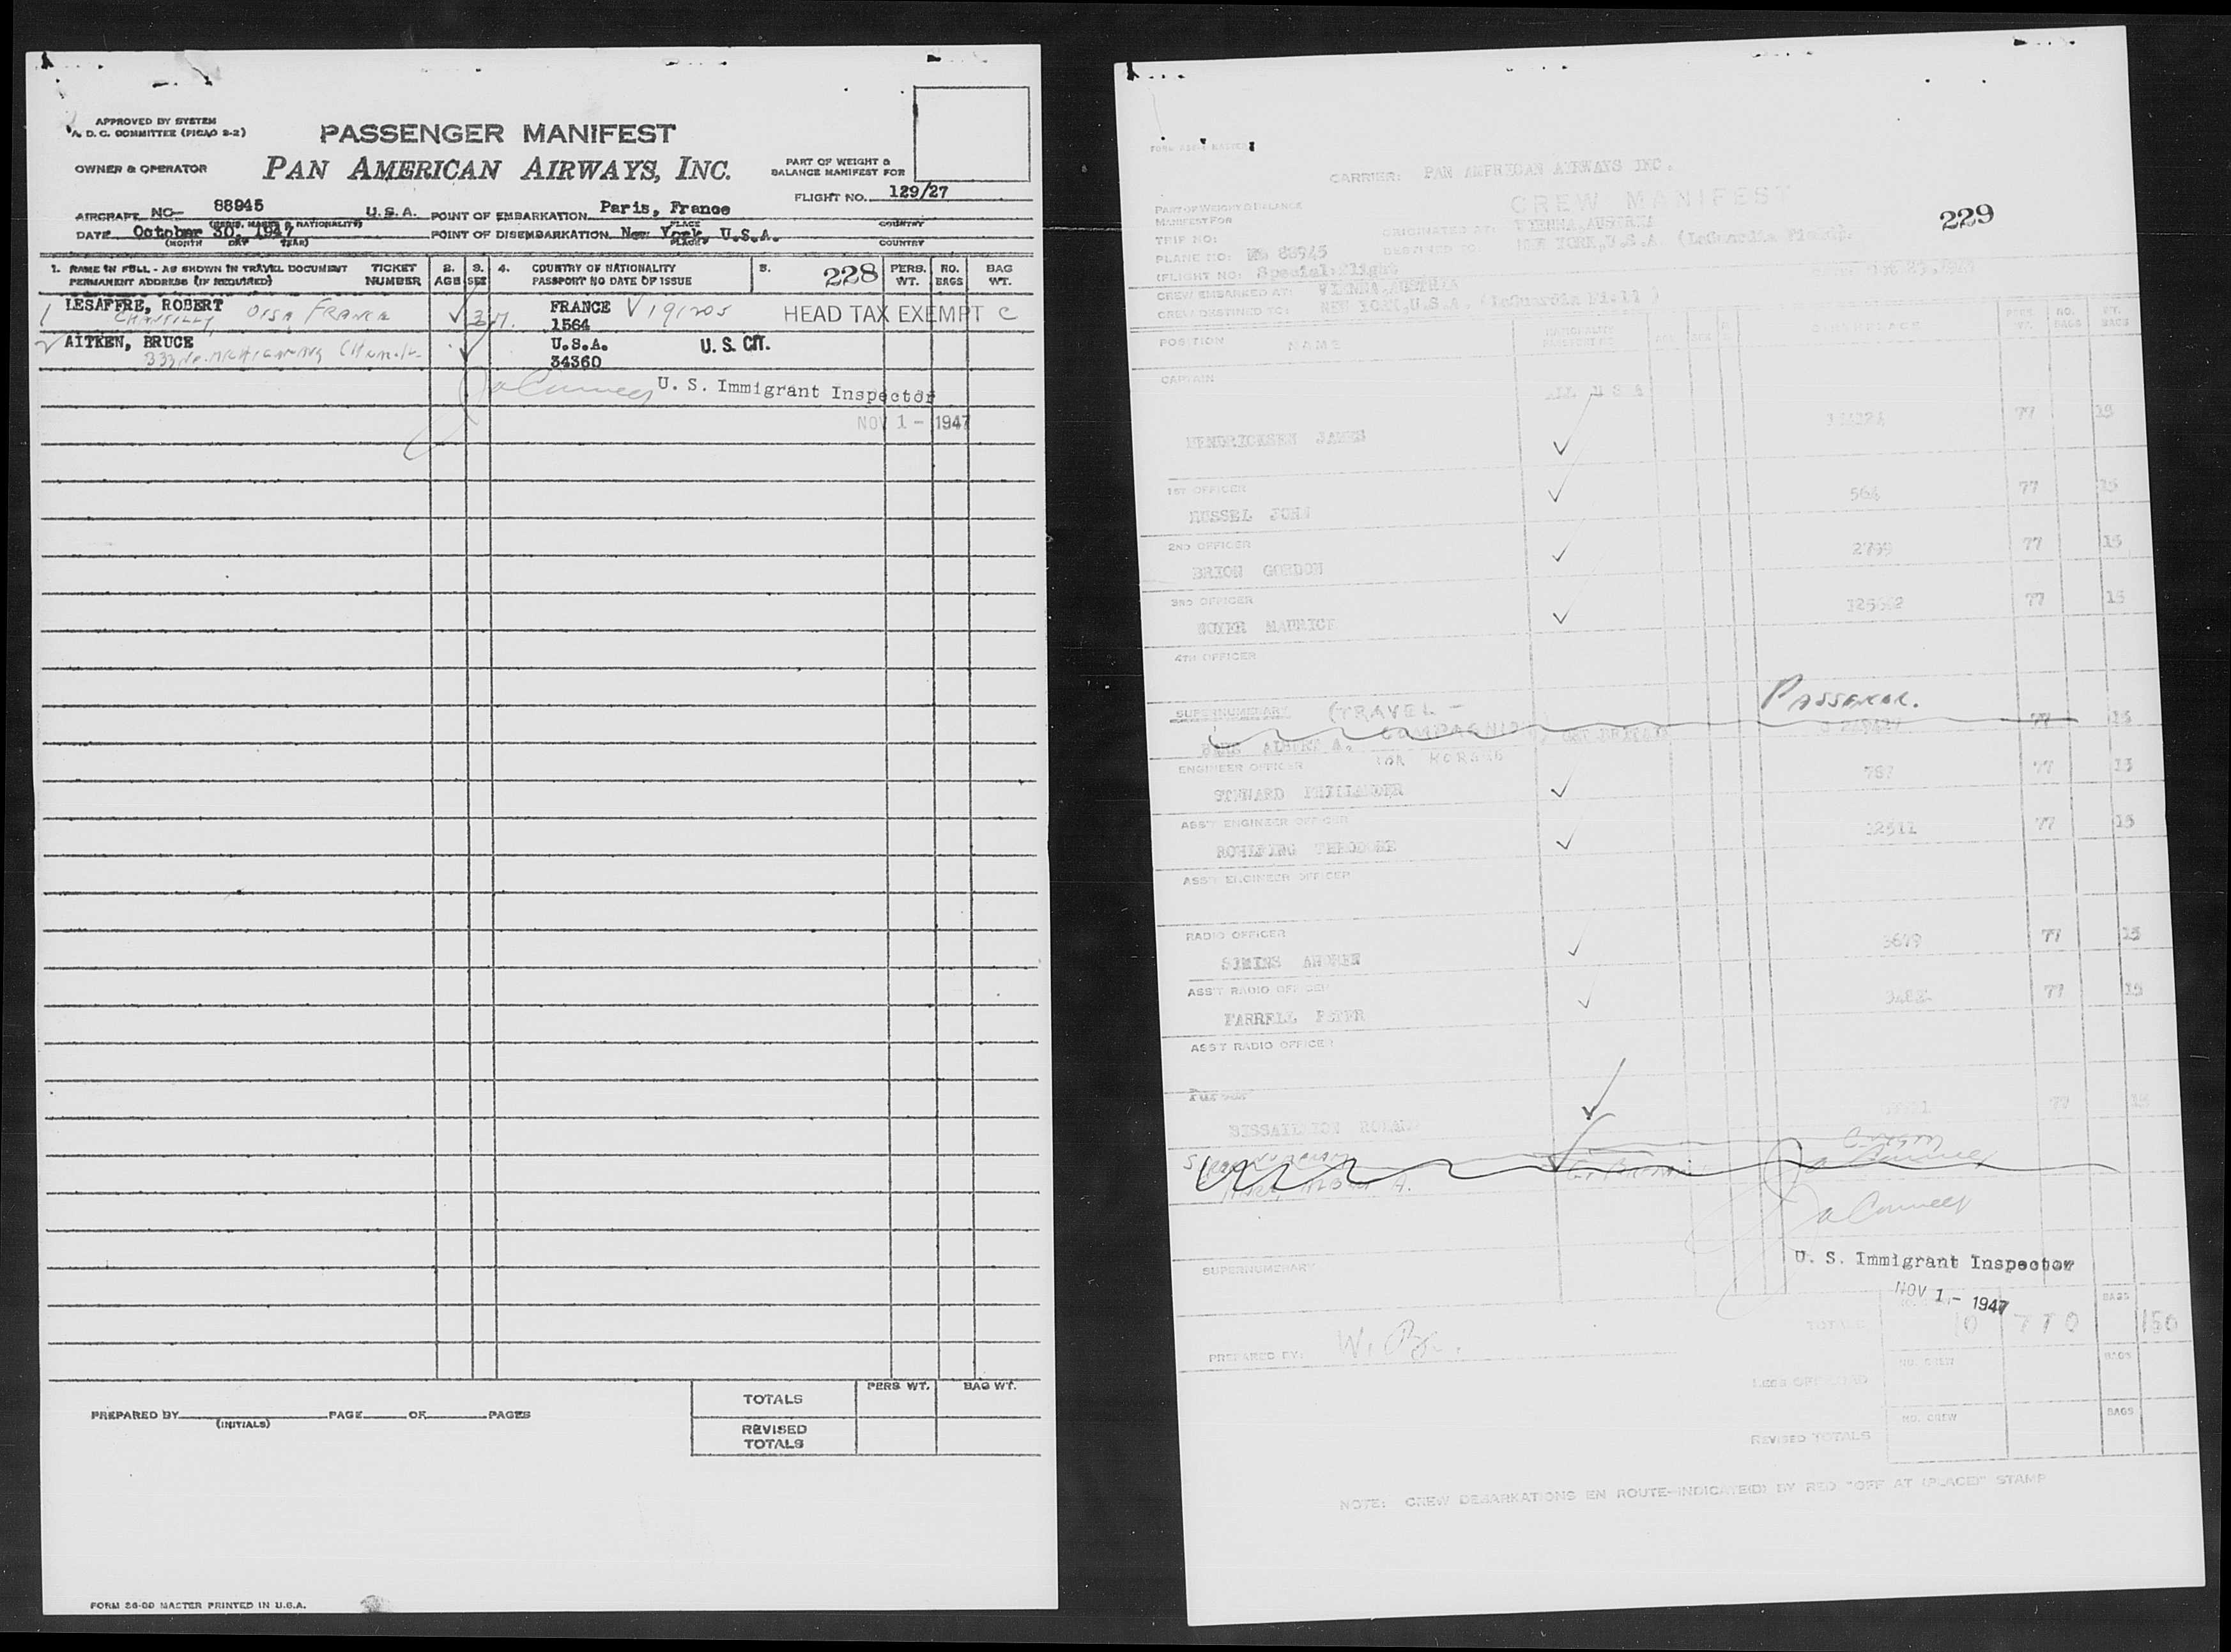 APPROVED BY SYSTEM
A. D. C. COMMITTEE (PICAO S-2)
PASSENGER MANIFEST
OWNER & OPERATOR
PAN AMERICAN AIRWAYS, INC.
PART OF WEIGHT &
BALANCE MANIFEST FOR
FLIGHT NO. 129/27
AIRCRAFT NO- 88945 U.S.A. POINT OF EMBARKATION Paris, France
(REGIS. MARKS & NATIONALITY) PLACE COUNTRY
DATE October 30, 1947 POINT OF DISEMBARKATION New York, U.S.A.
(MONTH DAY YEAR) PLACE COUNTRY
1. NAME IN FULL - AS SHOWN IN TRAVEL DOCUMENT TICKET 2. 3. 4. COUNTRY OF NATIONALITY 5. 228 PERS. NO. BAG
PERMANENT ADDRESS (IF REQUIRED) NUMBER AGE SEX PASSPORT NO DATE OF ISSUE WT. BAGS WT.
1 LESAFFRE, ROBERT FRANCE V 191205 HEAD TAX EXEMPT C
CHANTILLY, FRANCE 1564
2 AITKEN, BRUCE U.S.A. U. S. CIT.
333 No. MICHIGAN AVE 34360
U. S. Immigrant Inspector
NOV 1 - 1947
PREPARED BY PAGE OF PAGES
(INITIALS)
PERS WT. BAG WT.
TOTALS
REVISED
TOTALS
FORM 26-00 MASTER PRINTED IN U.S.A.
CARRIER: PAN AMERICAN AIRWAYS INC.
CREW MANIFEST
229
PART OF WEIGHT & BALANCE
MANIFEST FOR
TRIP NO: ORIGINATED AT: VIENNA, AUSTRIA
PLANE NO: NC 88945 DESTINED TO: NEW YORK, U.S.A. (LaGuardia Field).
(FLIGHT NO: Special Flight
CREW EMBARKED AT: VIENNA, AUSTRIA
CREW DESTINED TO: NEW YORK, U.S.A. (LaGuardia Field)
POSITION NAME NATIONALITY BIRTHPLACE PERS. WT. NO. BAGS WT. BAGS
CAPTAIN ALL U S A
HENDRICKSEN JAMES 77 15
1ST OFFICER
RUSSEL JOHN 564 77 15
2ND OFFICER
BRION GORDON 2799 77 15
3RD OFFICER
MAURICE 77 15
4TH OFFICER
PASSENGER.
SUPERNUMERARY (TRAVEL -
ALBERT A. COMPAGNION GRT BRITAIN 77 15
ENGINEER OFFICER FOR HORSES
STEWARD PHILLANDER 787 77 15
ASS'T ENGINEER OFFICER
ROHLFING THEODORE 77 15
ASS'T ENGINEER OFFICER
RADIO OFFICER
ANDREW 3679 77 15
ASS'T RADIO OFFICER
FARRELL PETER 77 15
ASS'T RADIO OFFICER
Purser
77 15
U. S. Immigrant Inspector
NOV 1 - 1947
SUPERNUMERARY
TOTALS 10 770 BAGS 150
PREPARED BY:
NO. CREW BAGS
LESS OFF
NO. CREW BAGS
REVISED TOTALS
NOTE: CREW DEBARKATIONS EN ROUTE-INDICATE(D) BY RED "OFF AT (PLACE)" STAMP